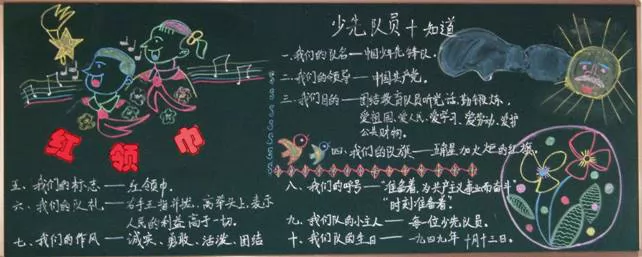 少先队员十知道
一、我们的队名——中国少年先锋队。
二、我们的领导——中国共产党。
三、我们目的——团结教育队员听党话,勤锻炼,
爱祖国、爱人民、爱学习、爱劳动、爱护
公共财物。
四、我们的队旗——五角星加火炬的红旗。
红领巾
五、我们的标志——红领巾。
六、我们的队礼——右手五指并拢,高举头上,表示
人民的利益高于一切。
七、我们的作风——诚实、勇敢、活泼、团结
八、我们的呼号——“准备着,为共产主义事业而奋斗”
“时刻准备着”
九、我们队的小主人——每一位少先队员。
十、我们队的生日——一九四九年十月十三日。